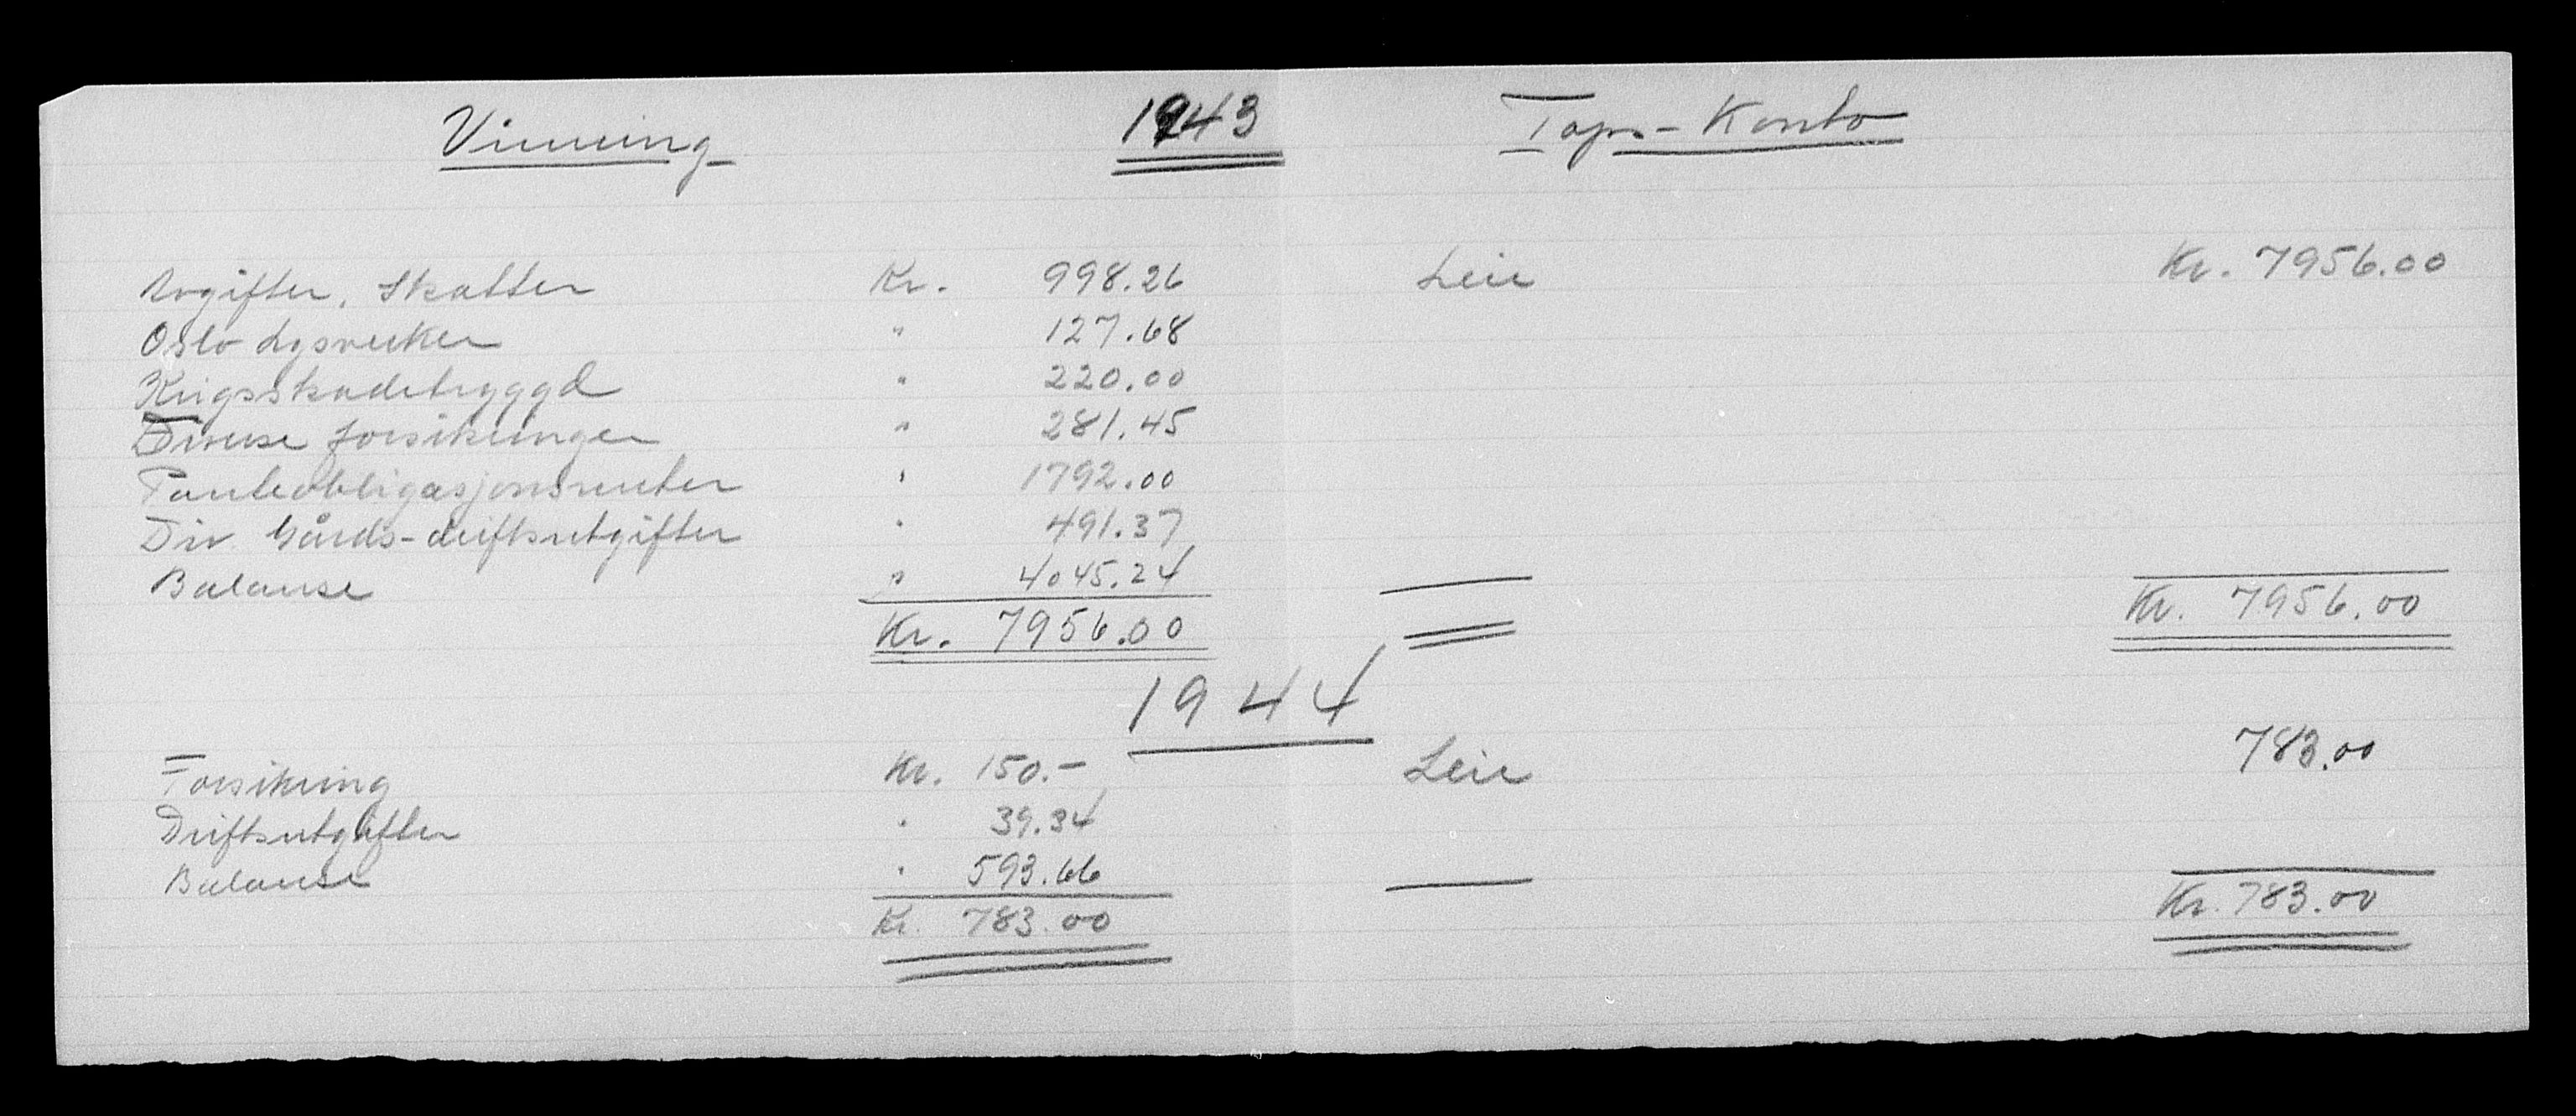 Vinning 1943 Taps-Konto
Avgifter, Skatter Kr. 998.26 Leie Kr. 7956.00
Oslo Lysverker " 127.68
Krigsskadetrygd " 220.00
Diverse forsikringer " 281.45
Panteobligasjonsrenter " 1792.00
Div. Gårds-driftsutgifter " 491.37
Balanse " 4045.24
Kr. 7956.00 Kr. 7956.00
1944
Forsikring Kr. 150.- Leie 783.00
Driftsutgifter " 39.34
Balanse " 593.66
Kr. 783.00 Kr. 783.00